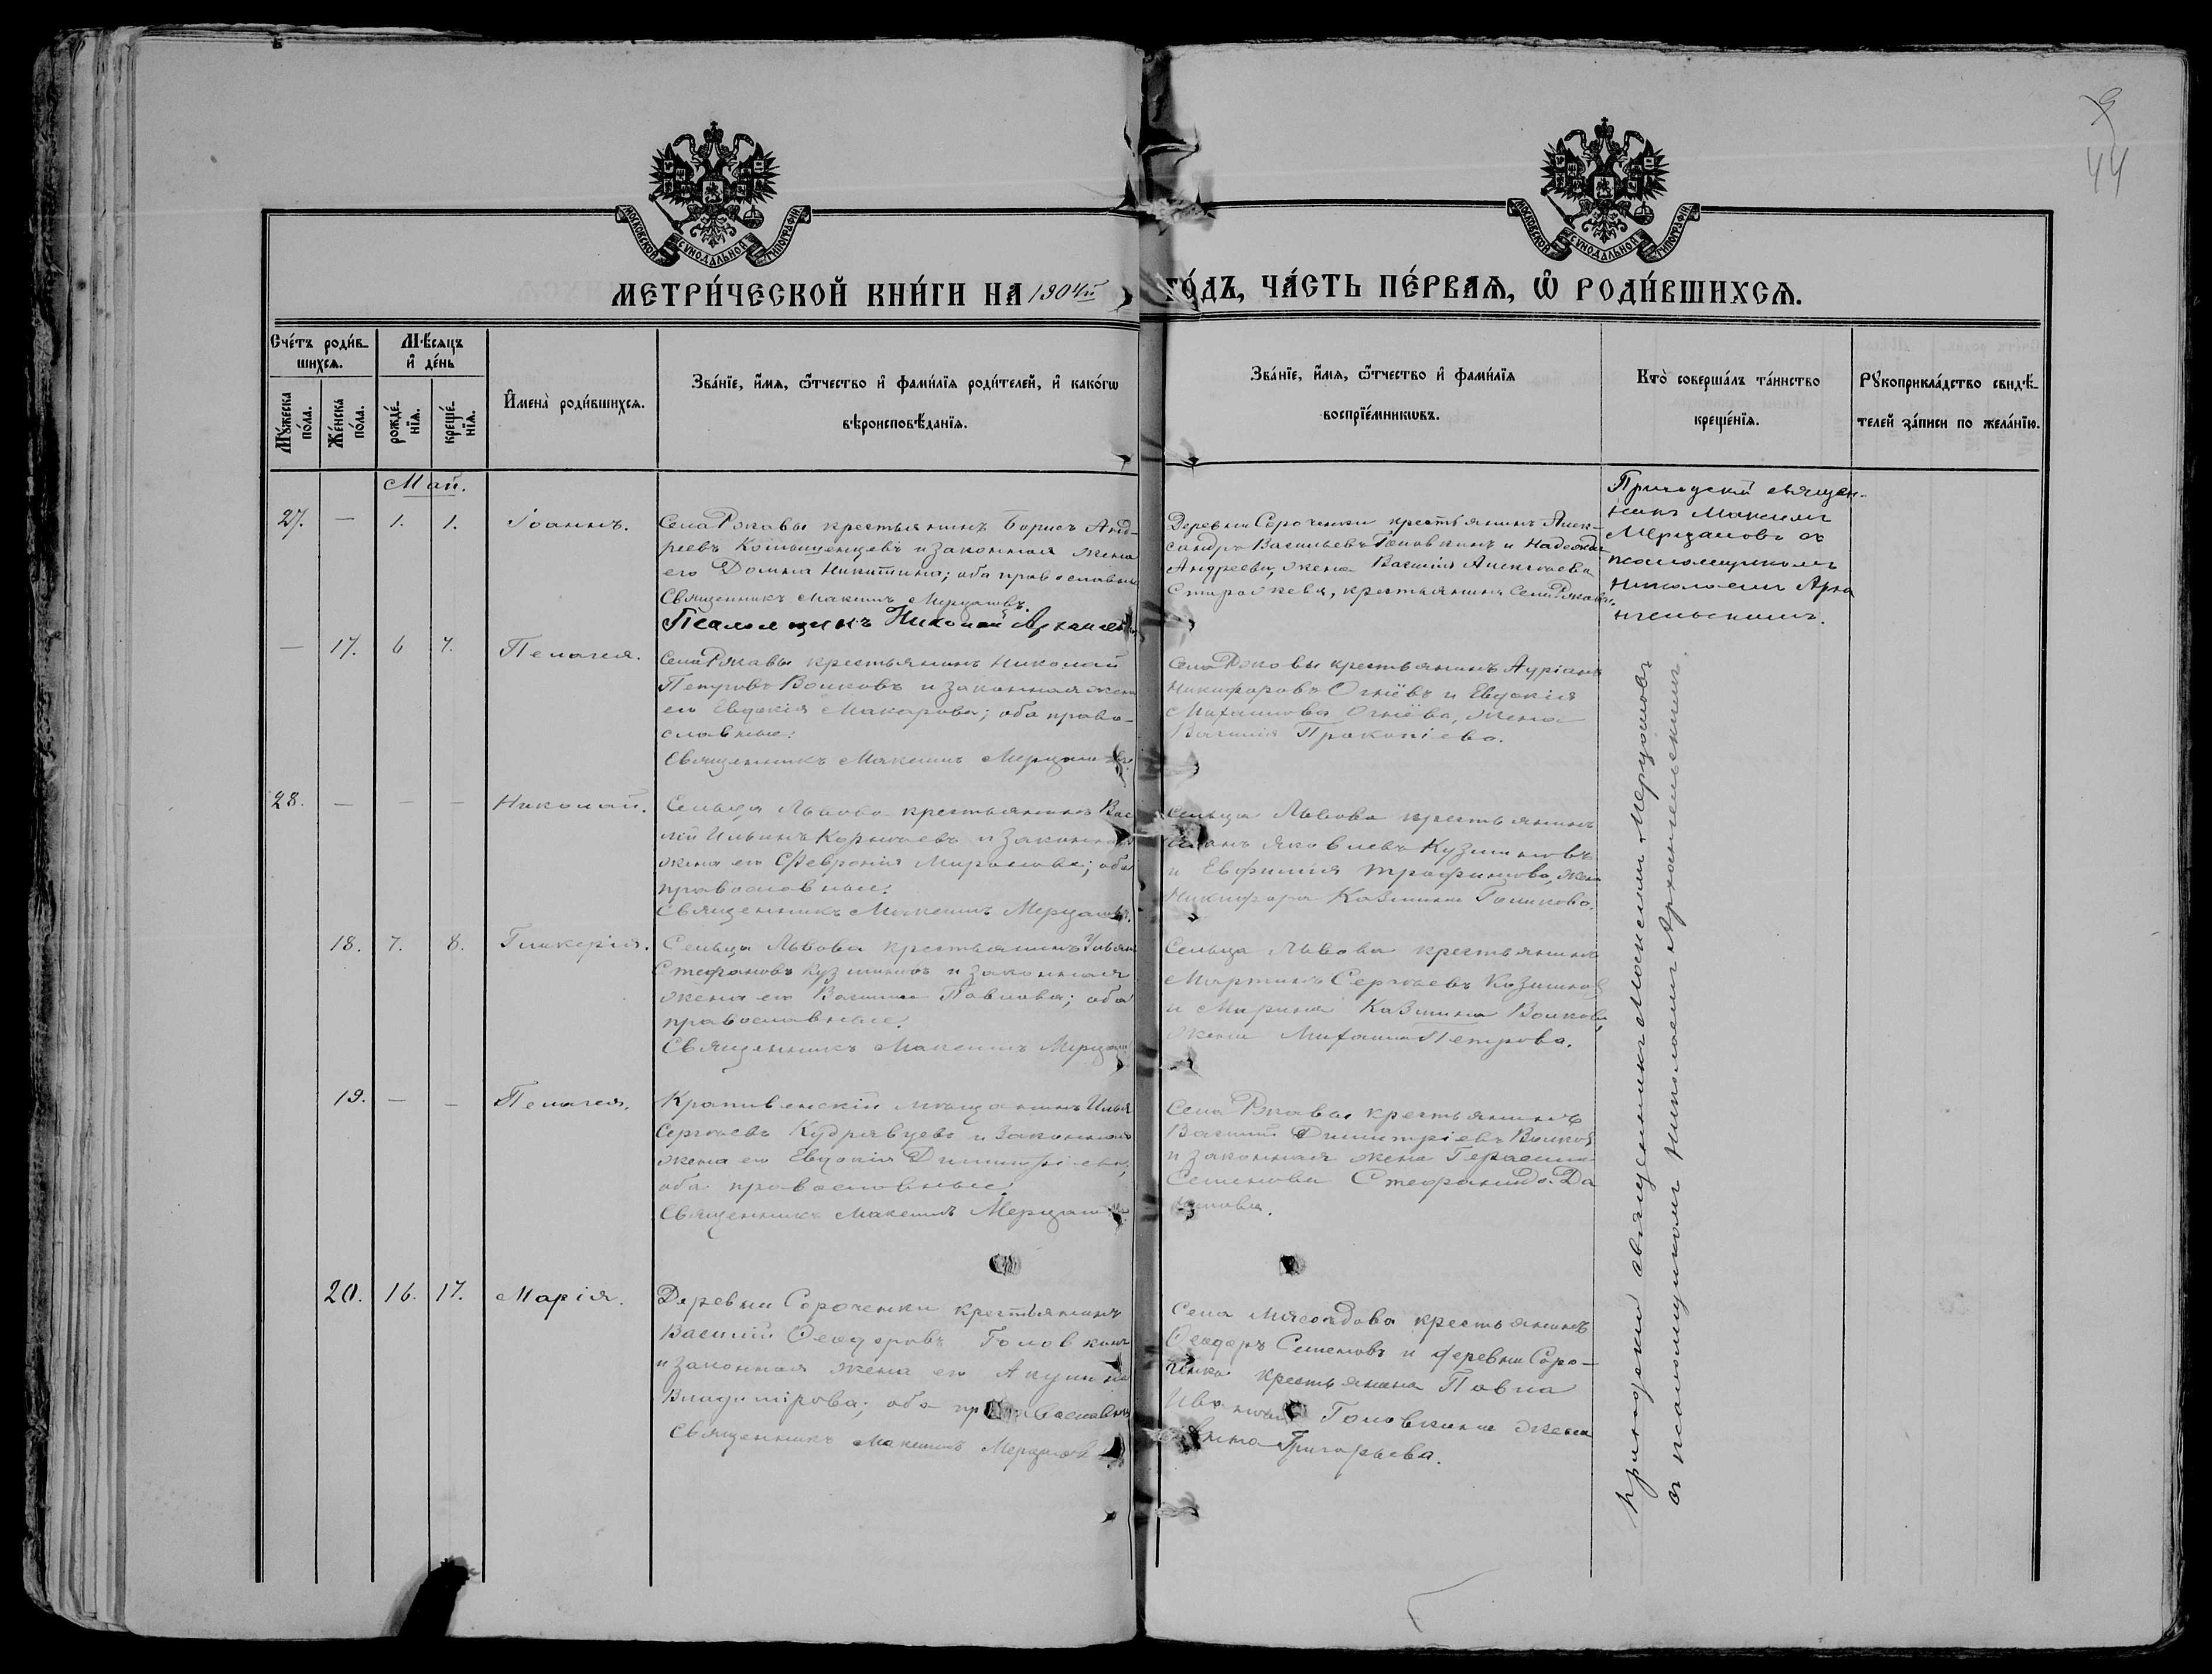 9
44
МОСКОВСКОЙ СѴНОДАЛЬНОЙ ТИПОГРАФІИ
МОСКОВСКОЙ СѴНОДАЛЬНОЙ ТИПОГРАФІИ
МЕТРИ́ЧЕСКОЙ КНИ́ГИ НА 1904й ГО́ДЪ, ЧА́СТЬ ПЕ́РВАѦ, Ѡ҆ РОДИ́ВШИХСѦ.
Сче́тъ роди́в-
шихсѧ.
Мꙋ́жеска
по́ла.
Же́нска
по́ла.
Мѣ́сѧцъ
и҆ де́нь
рожде́-
нїѧ.
креще́-
нїѧ.
И҆мена̀ роди́вшихсѧ.
Зва́нїе, и҆́мѧ, ѻ҆́тчество и҆ фами́лїѧ роди́телей, и҆ како́гѡ
вѣроисповѣ́данїѧ.
Зва́нїе, и҆́мѧ, ѻ҆́тчество и҆ фами́лїѧ
воспрїе́мникѡвъ.
Кто̀ соверша́лъ та́инство
креще́нїѧ.
Рꙋкоприкла́дство свидѣ́-
телей за́писи по жела́нїю.
Май.
27. — 1. 1. Іоаннъ.
Села Ржавы крестьянинъ Борисъ Анд-
реевъ и законная жена
его Домна Никитина; оба православны
Священникъ Максимъ Мерцаловъ.
Псаломщикъ Николай Архангел
Деревни Сороченки крестьянинъ Алек-
сандръ Васильевъ Головкинъ и Надежда
Андреева, жена Василія Алексѣева
крестьянина Села Ржавы.
Приходскій священ-
никъ Максимъ
Мерцаловъ съ
псаломщикомъ
Николаемъ Арха
нгельскимъ.
— 17. 6 7. Пелагея.
Села Ржавы крестьянинъ Николай
Петровъ Волковъ и законная жена
его Евдокія Макарова; оба право-
славные:
Священникъ Максимъ Мерцалов
Села Ржавы крестьянинъ Адріанъ
Никифоровъ Огнёвъ и Евдокія
Михаилова Огнёва, жена
Василія Прокопіева.
28. — — — Николай.
Сельца Львова крестьянинъ Вас
лій Ильинъ Корнѣевъ и законная
жена его Февронія Миронова; оба
православные.
Священникъ Максимъ Мерцаловъ.
Сельца Львова крестьянинъ
Яковлевъ Кузминовъ
и Евфимія Трофимова, жена
Никифора Голикова.
18. 7. 8. Гликерія.
Сельца Львова крестьянинъ Ульян
Стефановъ Кузминовъ и законная
жена его Павлова; оба
православные.
Священникъ Максимъ Мерцал
Сельца Львова крестьянинъ
Мартинъ Сергѣевъ
и Марина Волкова,
жена Михаила Петрова.
19. — — Пелагея.
Крапивенскій мѣщанинъ Илья
Сергѣевъ Кудрявцевъ и законная
жена его Евдокія Димитріева,
оба православные
Священникъ Максимъ Мерцалов
Села Ржавы крестьянинъ
Василій Димитріевъ Волковъ
и законная жена Герасима
Семенова Стефанида Да
ниловна.
20. 16. 17. Марія.
Деревни Сороченки крестьянинъ
Василій Ѳеодоровъ Головкинъ
и законная жена его Акулина
Владимірова; оба православны
Священникъ Максимъ Мерцалов
Села Мясоѣдова крестьянинъ
Ѳеодоръ Семеновъ и деревни Соро-
ченки крестьянина Павла
Иванова Головкина жена
Анна Григорьева.
Приходскій священникъ Максимъ Мерцаловъ
съ псаломщикомъ Николаемъ Архангельскимъ.